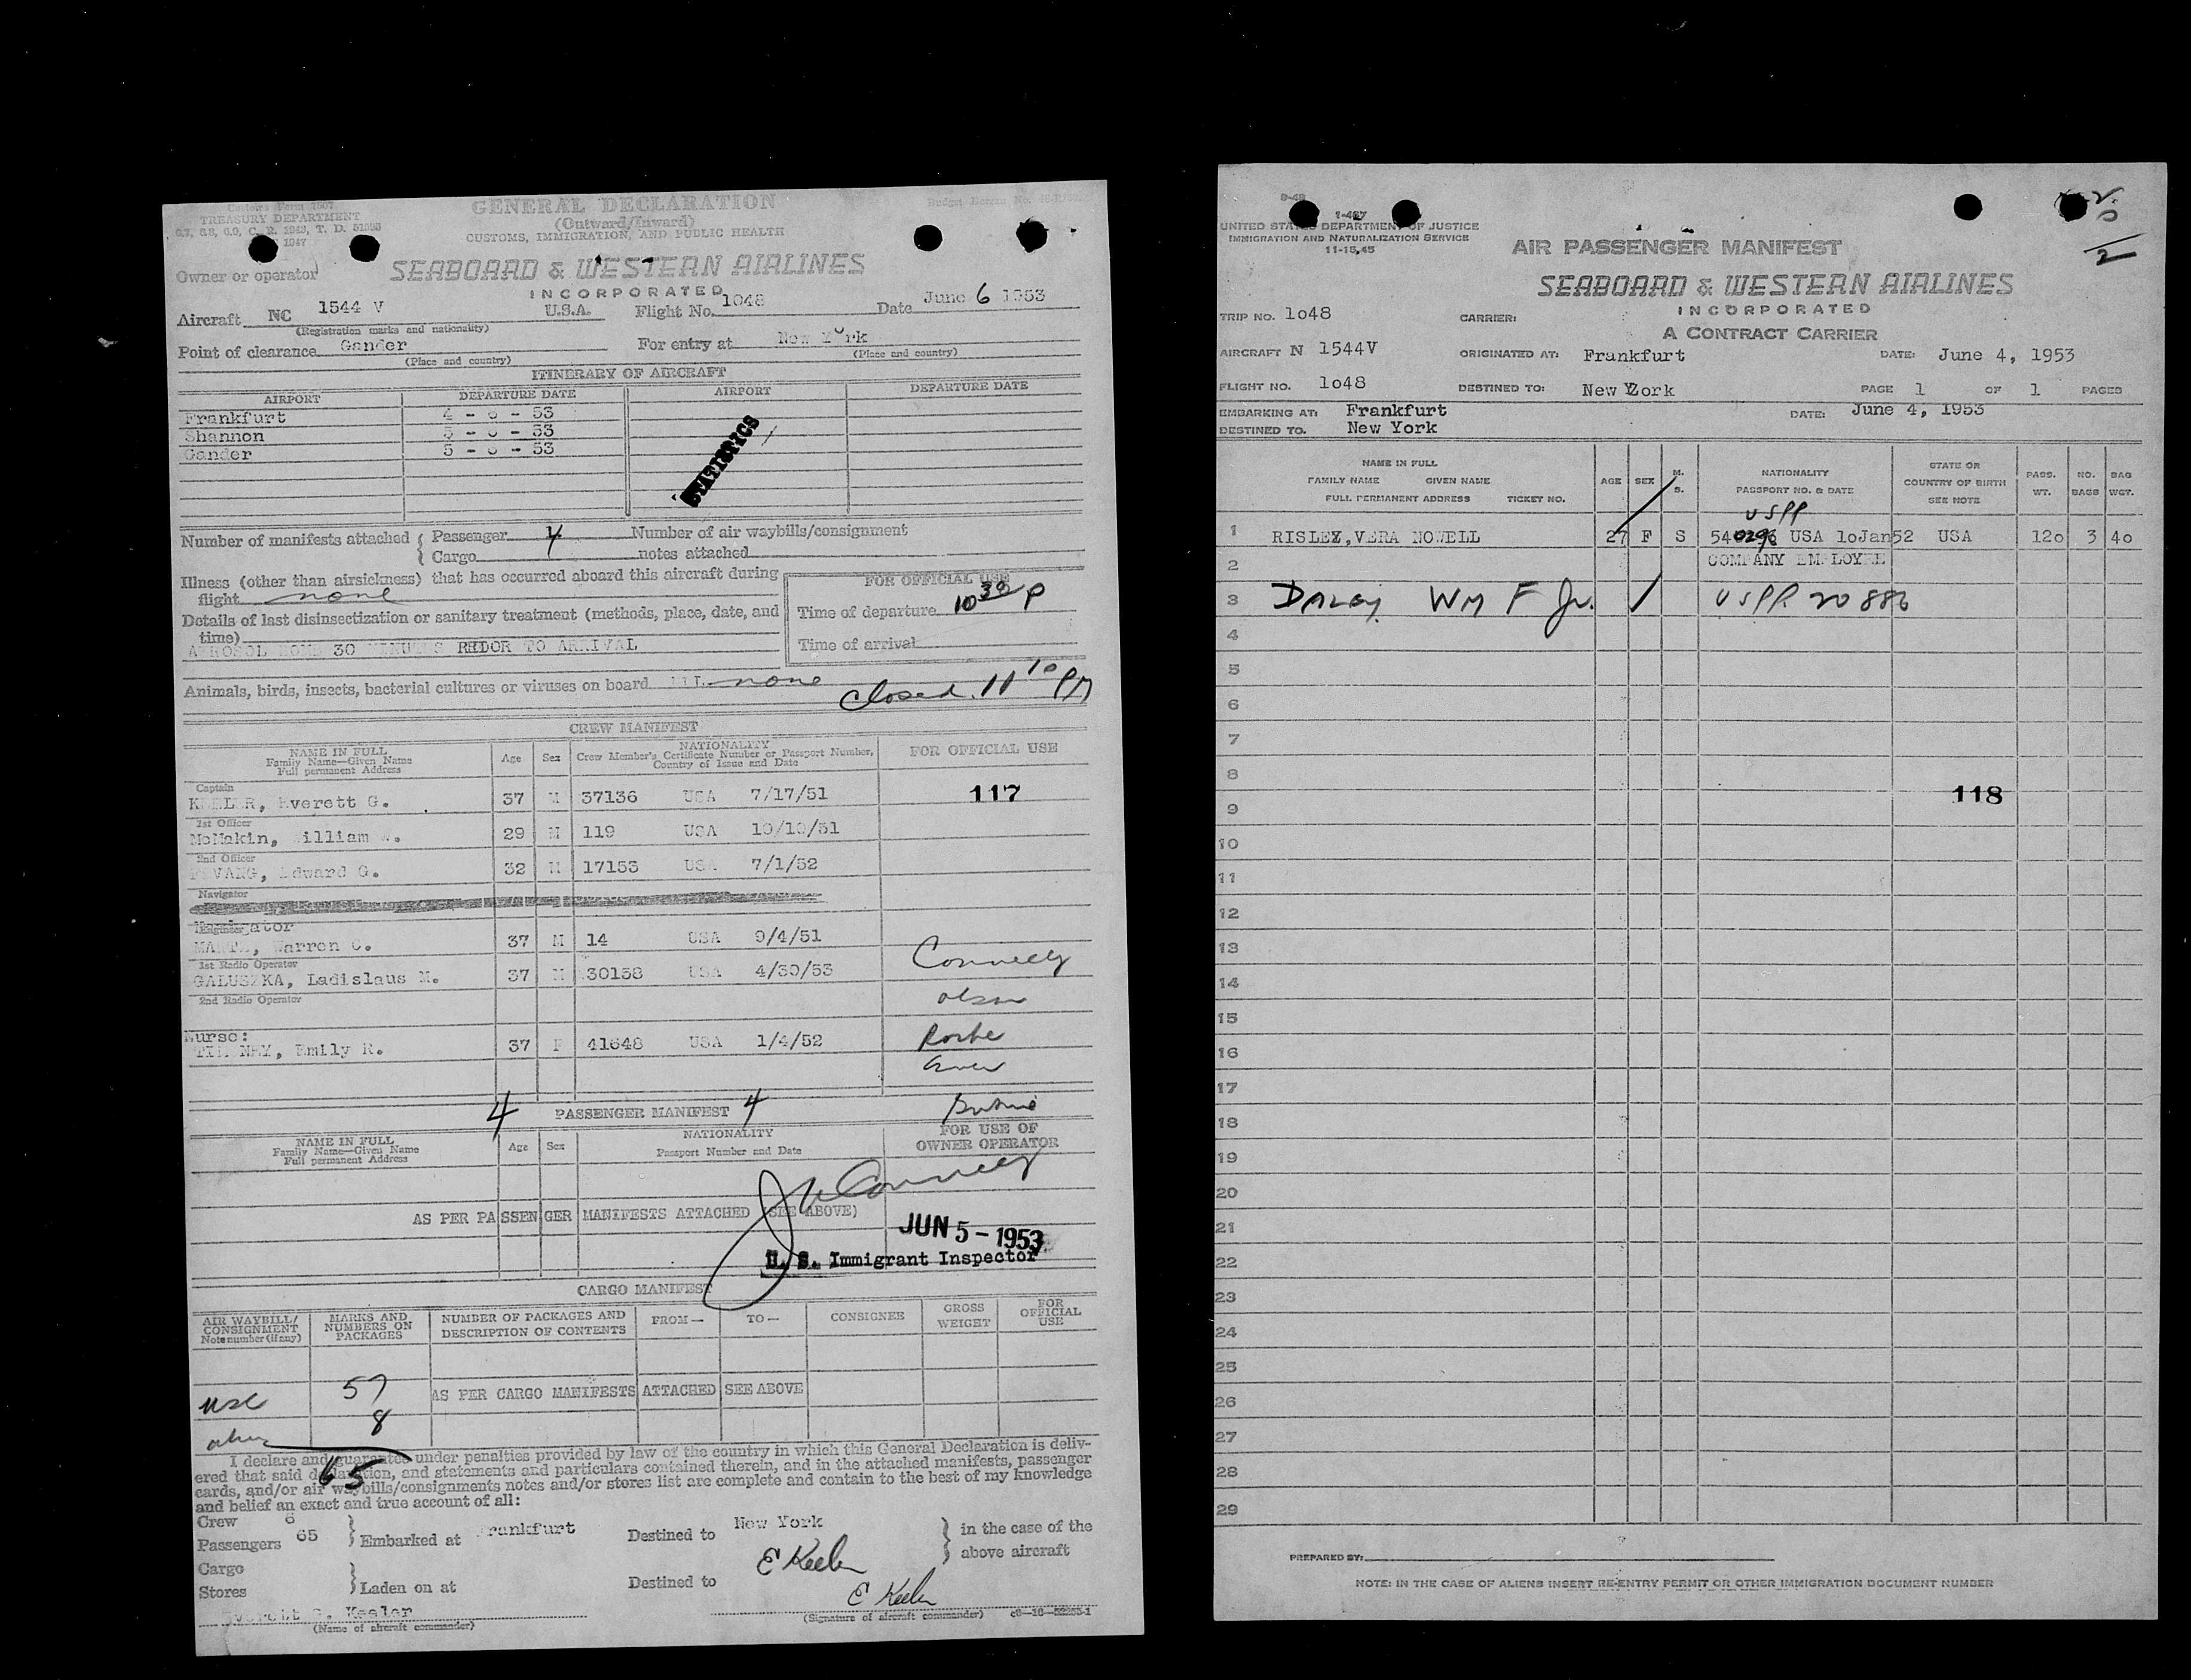 Customs Form 7507
TREASURY DEPARTMENT
6.7, 6.8, 6.9, C. R. 1943, T. D.
1947
GENERAL DECLARATION
(Outward/Inward)
CUSTOMS, IMMIGRATION, AND PUBLIC HEALTH
Budget Bureau No.
Owner or operator
SEABOARD & WESTERN AIRLINES
INCORPORATED
Aircraft NC 1544 V U.S.A. Flight No. 1048 Date June 6 1953
(Registration marks and nationality)
Point of clearance Gander For entry at New York
(Place and country) (Place and country)
ITINERARY OF AIRCRAFT
AIRPORT DEPARTURE DATE AIRPORT DEPARTURE DATE
Frankfurt 4 - 6 - 53
Shannon 5 - 6 - 53
Gander 5 - 6 - 53
STATISTICS
Number of manifests attached { Passenger 4 Number of air waybills/consignment
Cargo notes attached
Illness (other than airsickness) that has occurred aboard this aircraft during
flight none
FOR OFFICIAL USE
Time of departure 10 30 P
Details of last disinsectization or sanitary treatment (methods, place, date, and
time)
AEROSOL BOMB 30 MINUTES PRIOR TO ARRIVAL
Time of arrival
Animals, birds, insects, bacterial cultures or viruses on board none
Closed. 11 10 PM
CREW MANIFEST
NAME IN FULL
Family Name—Given Name
Full permanent Address
Age Sex
NATIONALITY
Crew Member's Certificate Number or Passport Number,
Country of Issue and Date
FOR OFFICIAL USE
Captain
KEELER, Everett G. 37 M 37136 USA 7/17/51 117
1st Officer
McMakin, William 29 M 119 USA 10/10/51
2nd Officer
Edward G. 32 M 17153 USA 7/1/52
Navigator
Engineer
Warren C. 37 M 14 USA 9/4/51
1st Radio Operator
GALUSZKA, Ladislaus M. 37 M 30158 USA 4/30/53
2nd Radio Operator
Connelly
Olson
Nurse:
Emily R. 37 F 41648 USA 1/4/52
4 PASSENGER MANIFEST 4
NAME IN FULL
Family Name—Given Name
Full permanent Address
Age Sex
NATIONALITY
Passport Number and Date
FOR USE OF
OWNER OPERATOR
AS PER PASSENGER MANIFESTS ATTACHED (SEE ABOVE)
JUN 5 - 1953
U. S. Immigrant Inspector
CARGO MANIFEST
AIR WAYBILL/
CONSIGNMENT
Note number (if any)
MARKS AND
NUMBERS ON
PACKAGES
NUMBER OF PACKAGES AND
DESCRIPTION OF CONTENTS
FROM— TO— CONSIGNEE
GROSS
WEIGHT
FOR
OFFICIAL
USE
USC 57 AS PER CARGO MANIFESTS ATTACHED SEE ABOVE
8
65
I declare and guarantee under penalties provided by law of the country in which this General Declaration is deliv-
ered that said declaration, and statements and particulars contained therein, and in the attached manifests, passenger
cards, and/or air waybills/consignments notes and/or stores list are complete and contain to the best of my knowledge
and belief an exact and true account of all:
Crew 6
Passengers 65 } Embarked at Frankfurt Destined to New York } in the case of the
above aircraft
E Keeler
Cargo
Stores } Laden on at Destined to
E Keeler
Everett G. Keeler
(Name of aircraft commander) (Signature of aircraft commander)
1-467
UNITED STATES DEPARTMENT OF JUSTICE
IMMIGRATION AND NATURALIZATION SERVICE
11-15.45
AIR PASSENGER MANIFEST
SEABOARD & WESTERN AIRLINES
INCORPORATED
A CONTRACT CARRIER
TRIP NO. 1o48 CARRIER:
AIRCRAFT N 1544V ORIGINATED AT: Frankfurt DATE: June 4, 1953
FLIGHT NO. 1o48 DESTINED TO: New York PAGE 1 OF 1 PAGES
EMBARKING AT: Frankfurt DATE: June 4, 1953
DESTINED TO. New York
NAME IN FULL
FAMILY NAME GIVEN NAME
FULL PERMANENT ADDRESS TICKET NO.
AGE SEX M. S.
NATIONALITY
PASSPORT NO. & DATE
STATE OR
COUNTRY OF BIRTH
SEE NOTE
PASS. WT.
NO. BAGS
BAG WGT.
USPP
1 RISLEY, VERA NOWELL 27 F S 540296 USA 1oJan52 USA 12o 3 4o
2 COMPANY EMPLOYEE
3 Daley, Wm F Jr. / USPP 20886
4
5
6
7
8
118
9
10
11
12
13
14
15
16
17
18
19
20
21
22
23
24
25
26
27
28
29
PREPARED BY:
NOTE: IN THE CASE OF ALIENS INSERT RE-ENTRY PERMIT OR OTHER IMMIGRATION DOCUMENT NUMBER